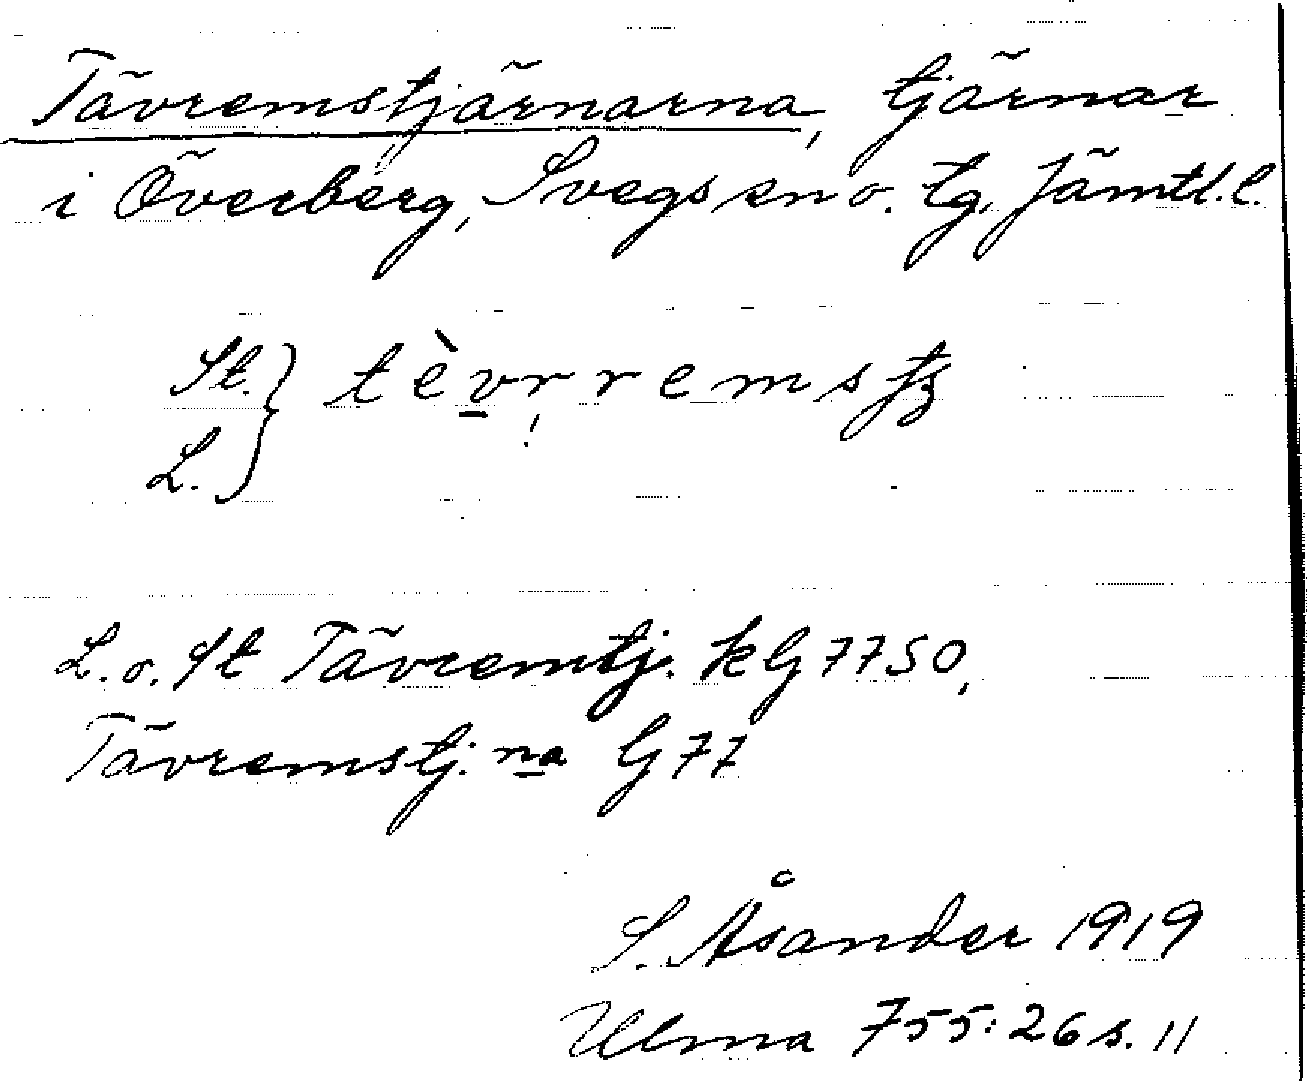 Tävremstjärnarna, tjärnar
i Överberg, Svegs sn o. tg, Jämtl. l.
St. } tèvr̥remstʒ
L.
L. o. St Tävremtj. kG 7750,
Tävremstj:na G 77
S. Åsander 1919
Ulma 755:26 s. 11